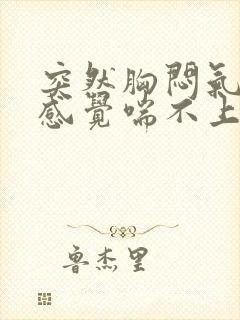 突然胸悶氣
感覺喘不上
魯杰里